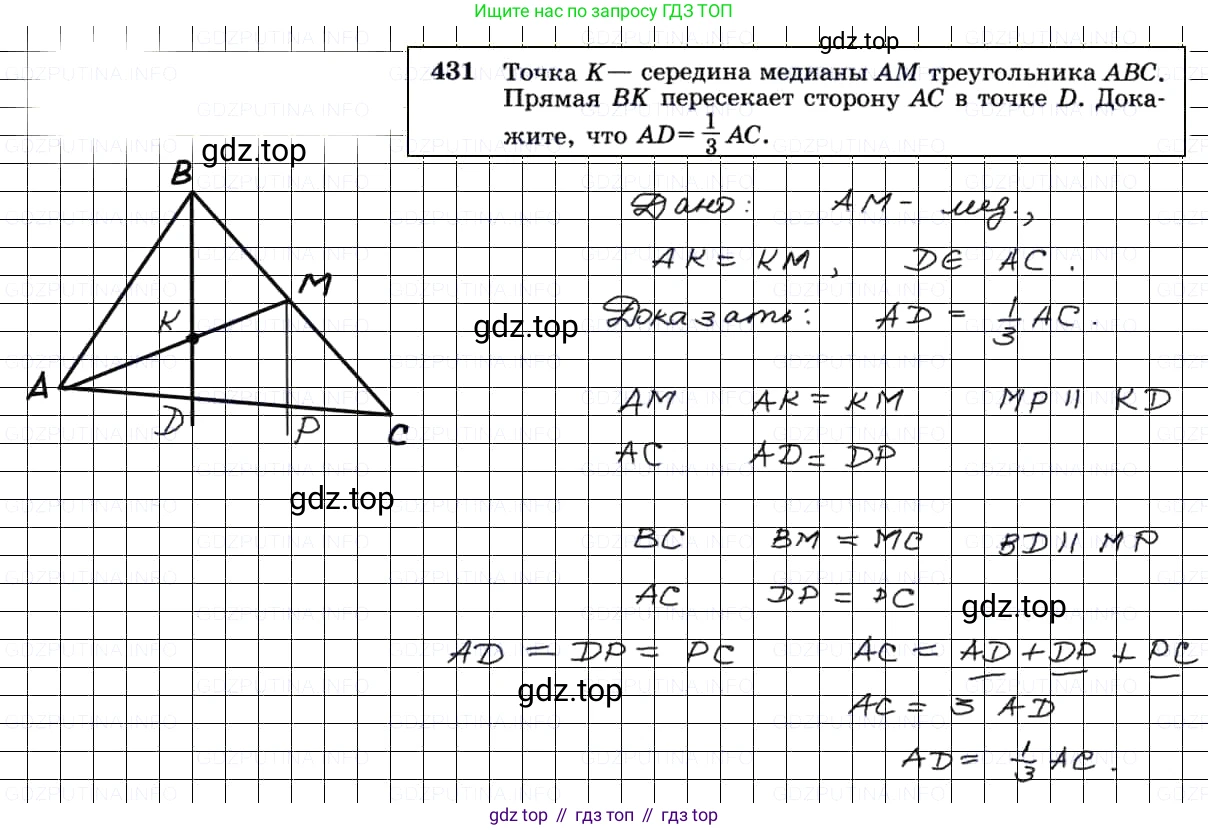 Ищите нас по запросу ГДЗ ТОП
gdz.top
431 Точка K — середина медианы AM треугольника ABC.
Прямая BK пересекает сторону AC в точке D. Дока-
жите, что AD = 1/3 AC.
gdz.top
B
M
K
A
D
P
C
gdz.top
gdz.top
Дано: AM - мед.,
AK = KM, D ∈ AC.
Доказать: AD = 1/3 AC.
AM AK = KM MP || KD
AC AD = DP
BC BM = MC BD || MP
AC DP = PC
gdz.top
AD = DP = PC AC = AD + DP + PC
gdz.top
AC = 3 AD
AD = 1/3 AC.
gdz.top // гдз топ // гдз top
GDZPUTINA.INFO